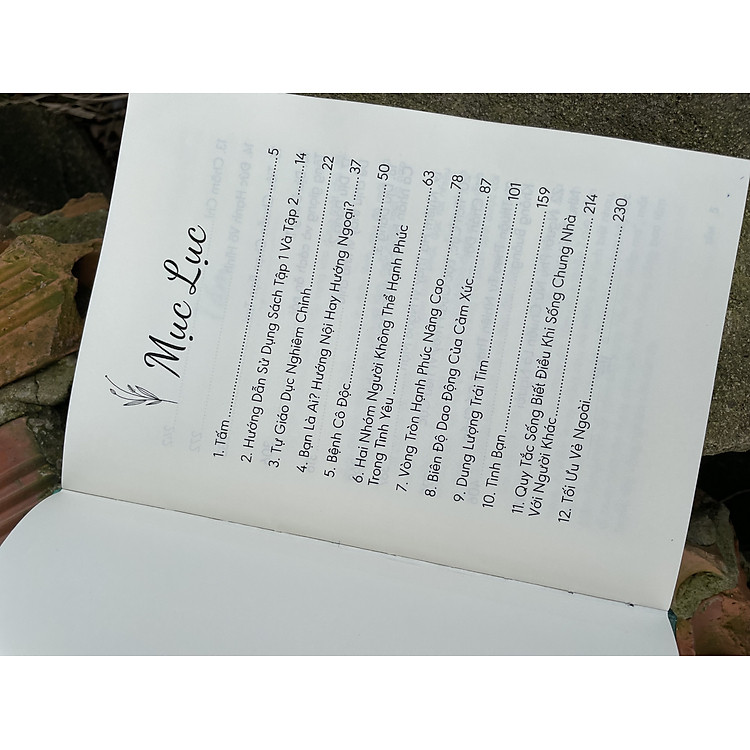 Mục Lục
1. Tấm ........ 5
2. Hướng Dẫn Sử Dụng Sách Tập 1 Và Tập 2 ........ 14
3. Tự Giáo Dục Nghiêm Chỉnh ........ 22
4. Bạn Là Ai? Hướng Nội Hay Hướng Ngoại? ........ 37
5. Bệnh Cô Độc ........ 50
6. Hai Nhóm Người Không Thể Hạnh Phúc
Trong Tình Yêu ........ 63
7. Vòng Tròn Hạnh Phúc Nâng Cao ........ 78
8. Biên Độ Dao Động Của Cảm Xúc ........ 87
9. Dung Lượng Trái Tim ........ 101
10. Tình Bạn ........ 159
11. Quy Tắc Sống Biết Điều Khi Sống Chung Nhà
Với Người Khác ........ 214
12. Tối Ưu Vẻ Ngoài ........ 230